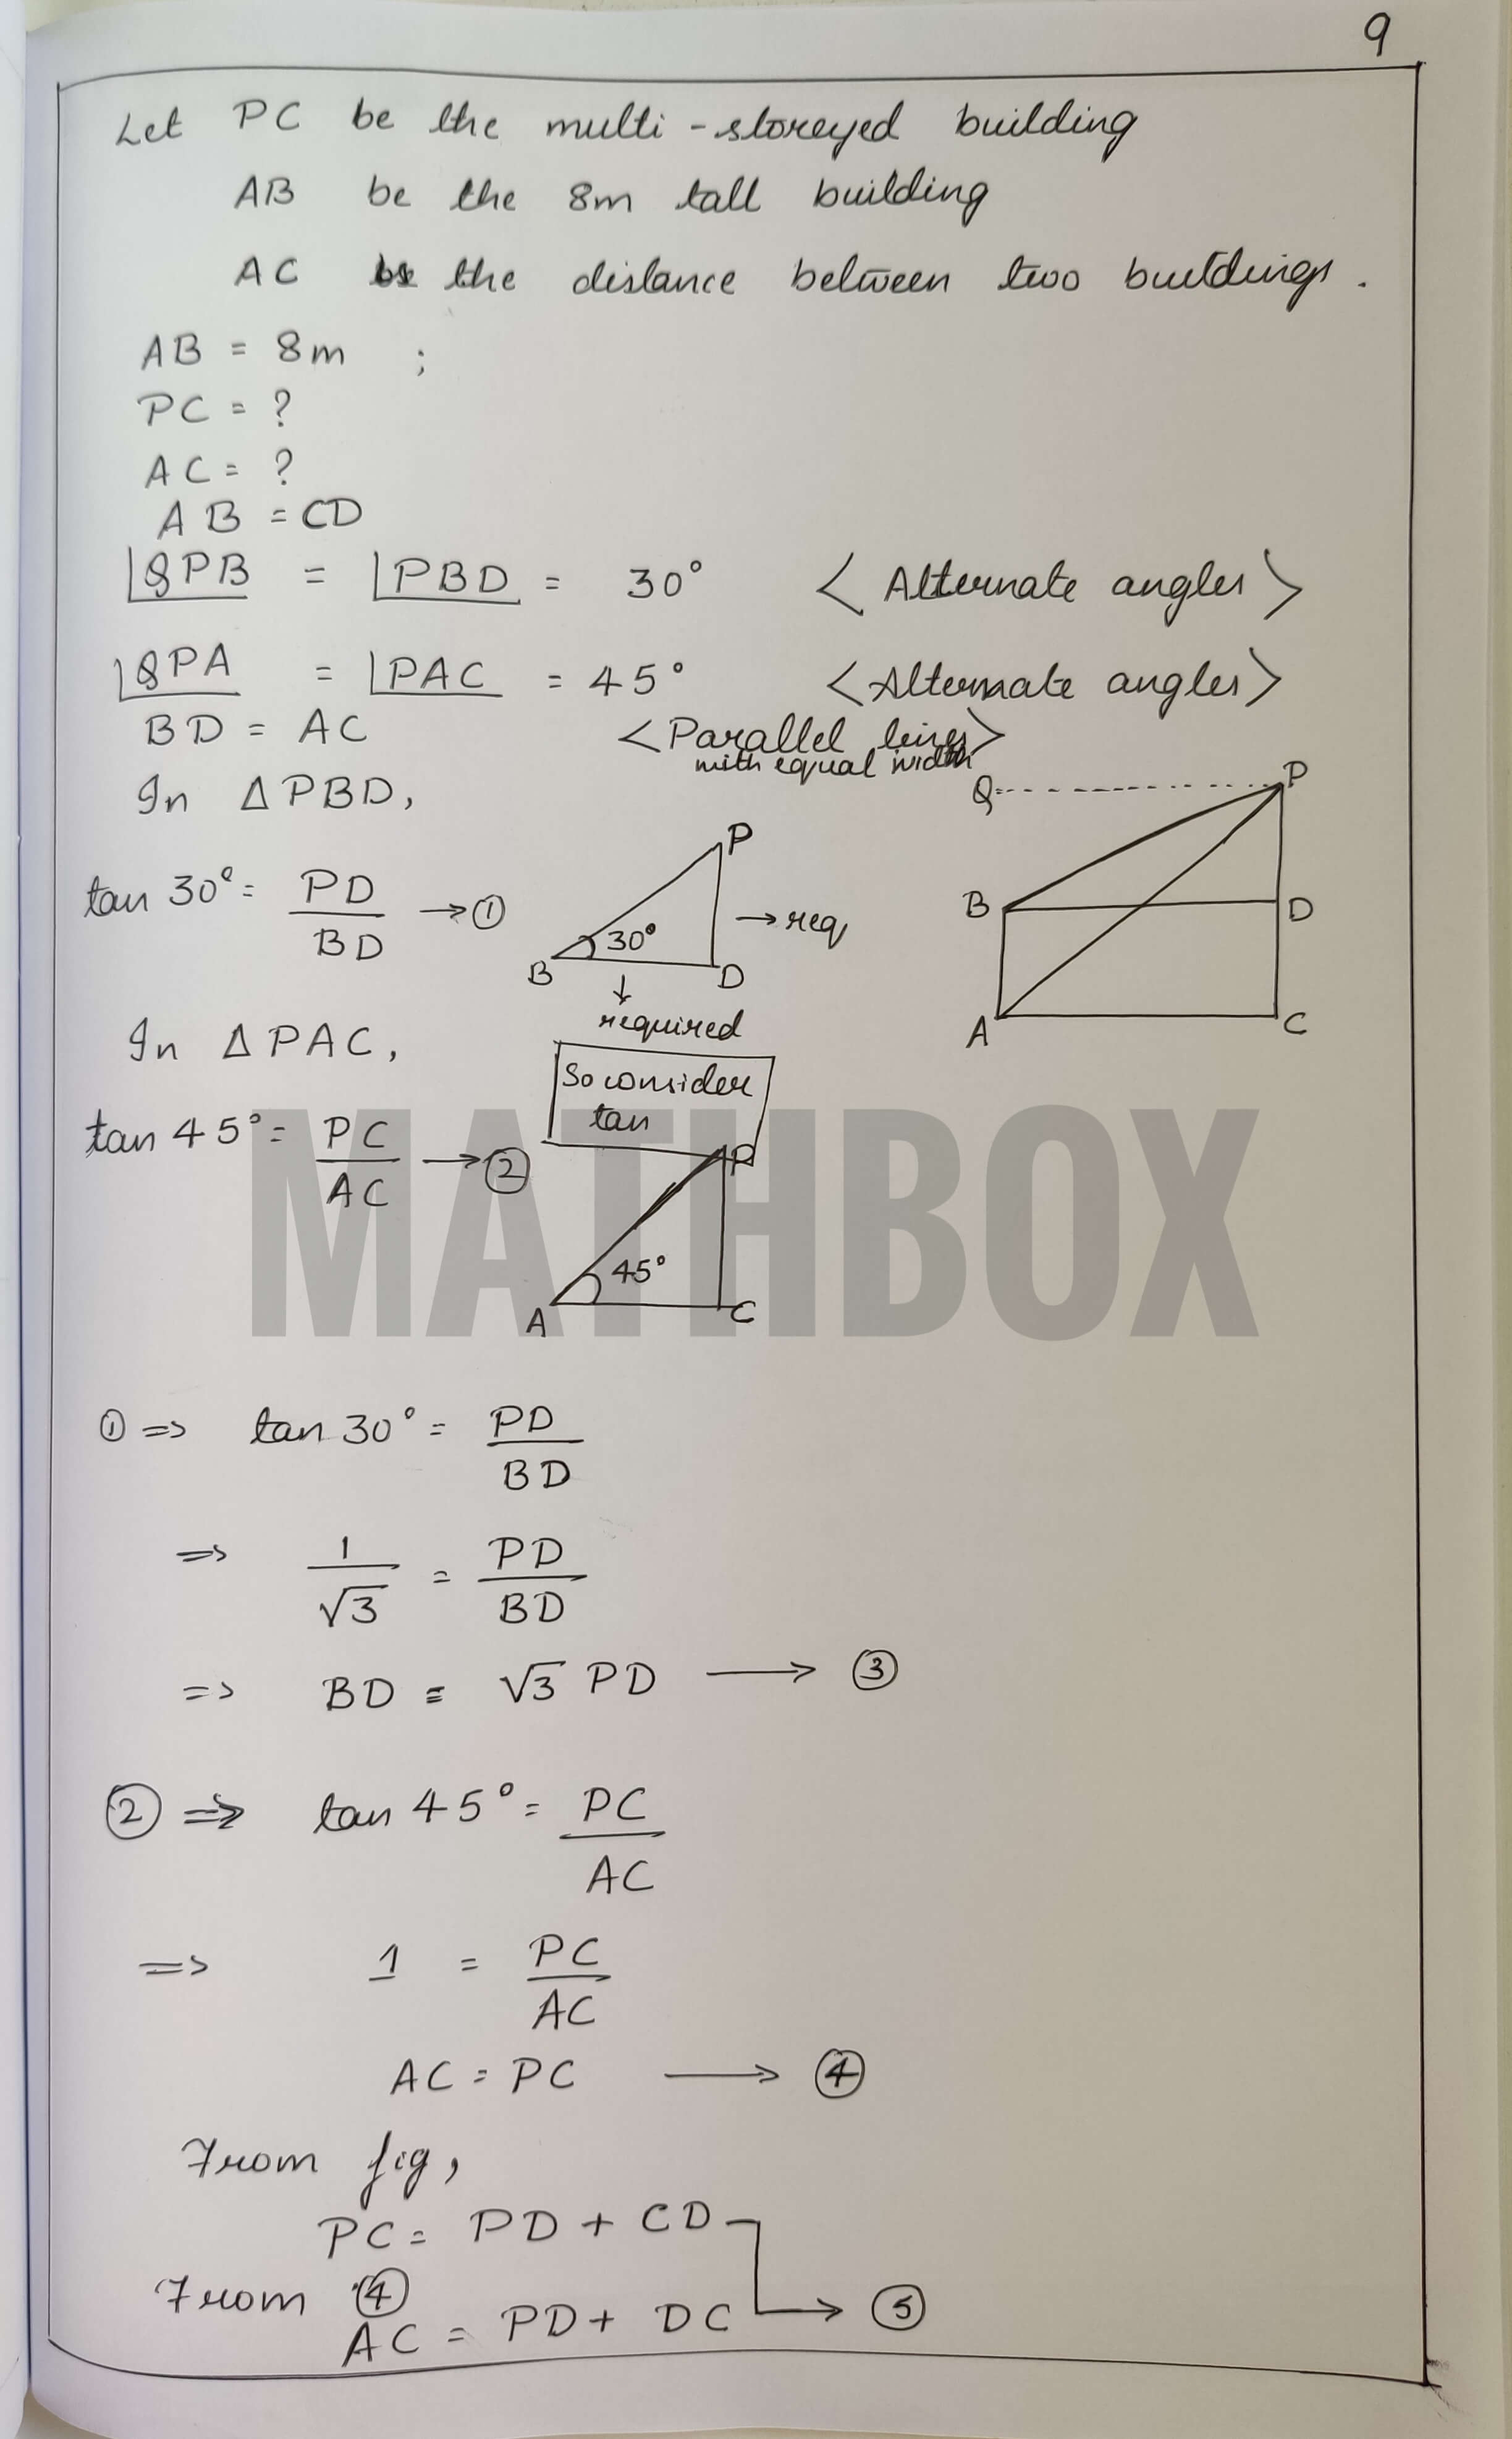 9
Let PC be the multi-storeyed building
AB be the 8m tall building
AC be the distance between two buildings.
AB = 8m ;
PC = ?
AC = ?
AB = CD
∠QPB = ∠PBD = 30° < Alternate angles >
∠QPA = ∠PAC = 45° < Alternate angles >
BD = AC < Parallel lines >
with equal width
In Δ PBD,
Q P
B D
A C
P
tan 30° = PD/BD → ①
30°
→ req
B D
↓
required
So consider
tan
In Δ PAC,
tan 45° = PC/AC → ②
P
45°
A C
MATHBOX
① ⇒ tan 30° = PD/BD
⇒ 1/√3 = PD/BD
⇒ BD = √3 PD → ③
② ⇒ tan 45° = PC/AC
⇒ 1 = PC/AC
AC = PC → ④
From fig,
PC = PD + CD
From ④
AC = PD + DC → ⑤